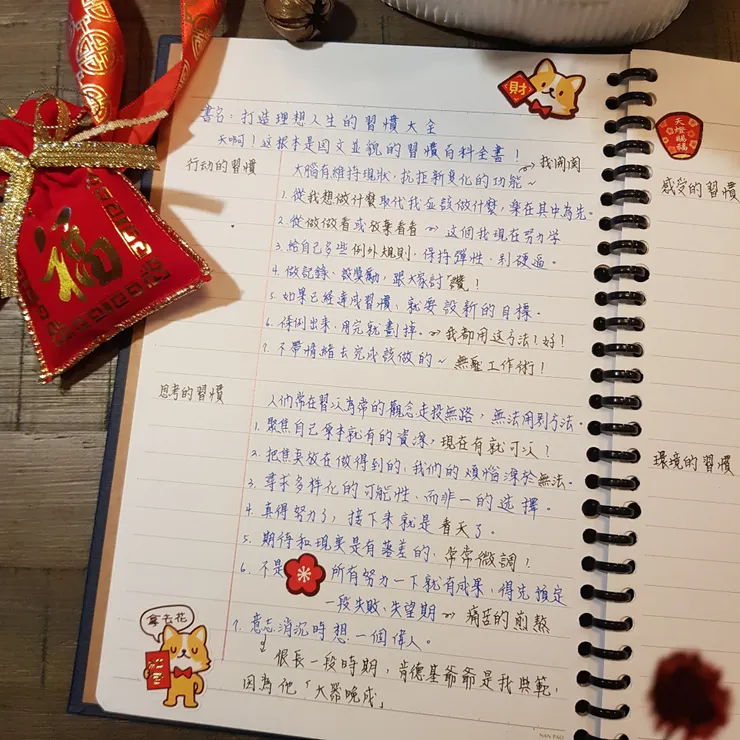 財
書名：打造理想人生的習慣大全
天啊！這根本是図文並貌的習慣百科全書！
天燈賜福
行动的習慣
大腦有維持現狀，抗拒新变化的功能～
1. 從我想做什麼取代我应該做什麼，樂在其中為先。
2. 從做做看或放棄看看 這個我現在努力学
3. 給自己多些例外規則，保持彈性，別硬逼。
4. 做記錄、設獎勵，跟大家討「讚！
5. 如果已經達成習慣，就要設新的目標。
6. 條例出來，用完就劃掉。我都用这方法！好！
7. 不帶情緒去完成該做的～ 無壓工作術！
感受的習慣
福
思考的習慣
人们常在習以為常的觀念走投無路，無法用別方法。
1. 聚焦自己原本就有的資源，現在有就可以！
2. 把焦点放在做得到的，我們的煩惱源於無法。
3. 尋求多样化的可能性，而非一的选擇。
4. 真得努力了，接下來就是看天了。
5. 期待和現実是有落差的，常常微調！
6. 不是所有努力一下就有成果，得先預定
一段失敗、失望期 痛苦的煎熬
7. 意志消沉時想一個偉人。
很長一段時期，肯德基爺爺是我典範，
因為他「大器晚成」
環境的習慣
NAN PAO